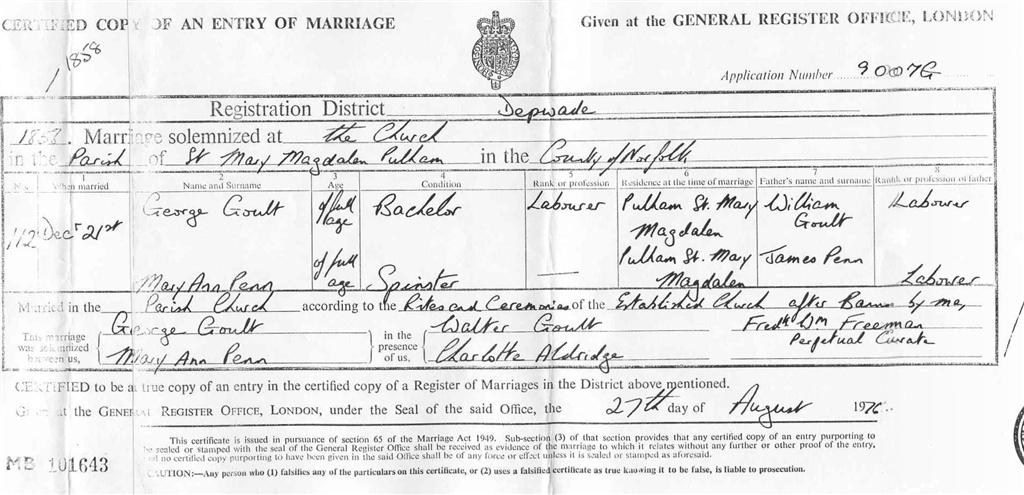 CERTIFIED COPY OF AN ENTRY OF MARRIAGE
Given at the GENERAL REGISTER OFFICE, LONDON
1858
Application Number 9007G
Registration District Depwade
1858. Marriage solemnized at the Church
in the Parish of St Mary Magdalen Pulham in the County of Norfolk
1 2 3 4 5 6 7 8
No. When married Name and Surname Age Condition Rank or profession Residence at the time of marriage Father's name and surname Rank or profession of father
112 Decr 21st George Goult of full age Bachelor Labourer Pulham St. Mary Magdalen William Goult Labourer
Mary Ann Penn of full age Spinster — Pulham St. Mary Magdalen James Penn Labourer
Married in the Parish Church according to the Rites and Ceremonies of the Established Church after Banns by me,
This marriage was solemnized between us, George Goult Mary Ann Penn in the presence of us, Walter Goult Charlotte Aldridge Fredk Wm Freeman Perpetual Curate
CERTIFIED to be a true copy of an entry in the certified copy of a Register of Marriages in the District above mentioned.
Given at the GENERAL REGISTER OFFICE, LONDON, under the Seal of the said Office, the 27th day of August 1976.
This certificate is issued in pursuance of section 65 of the Marriage Act 1949. Sub-section (3) of that section provides that any certified copy of an entry purporting to
be sealed or stamped with the seal of the General Register Office shall be received as evidence of the marriage to which it relates without any further or other proof of the entry,
and no certified copy purporting to have been given in the said Office shall be of any force or effect unless it is sealed or stamped as aforesaid.
CAUTION:—Any person who (1) falsifies any of the particulars on this certificate, or (2) uses a falsified certificate as true knowing it to be false, is liable to prosecution.
MB 101643